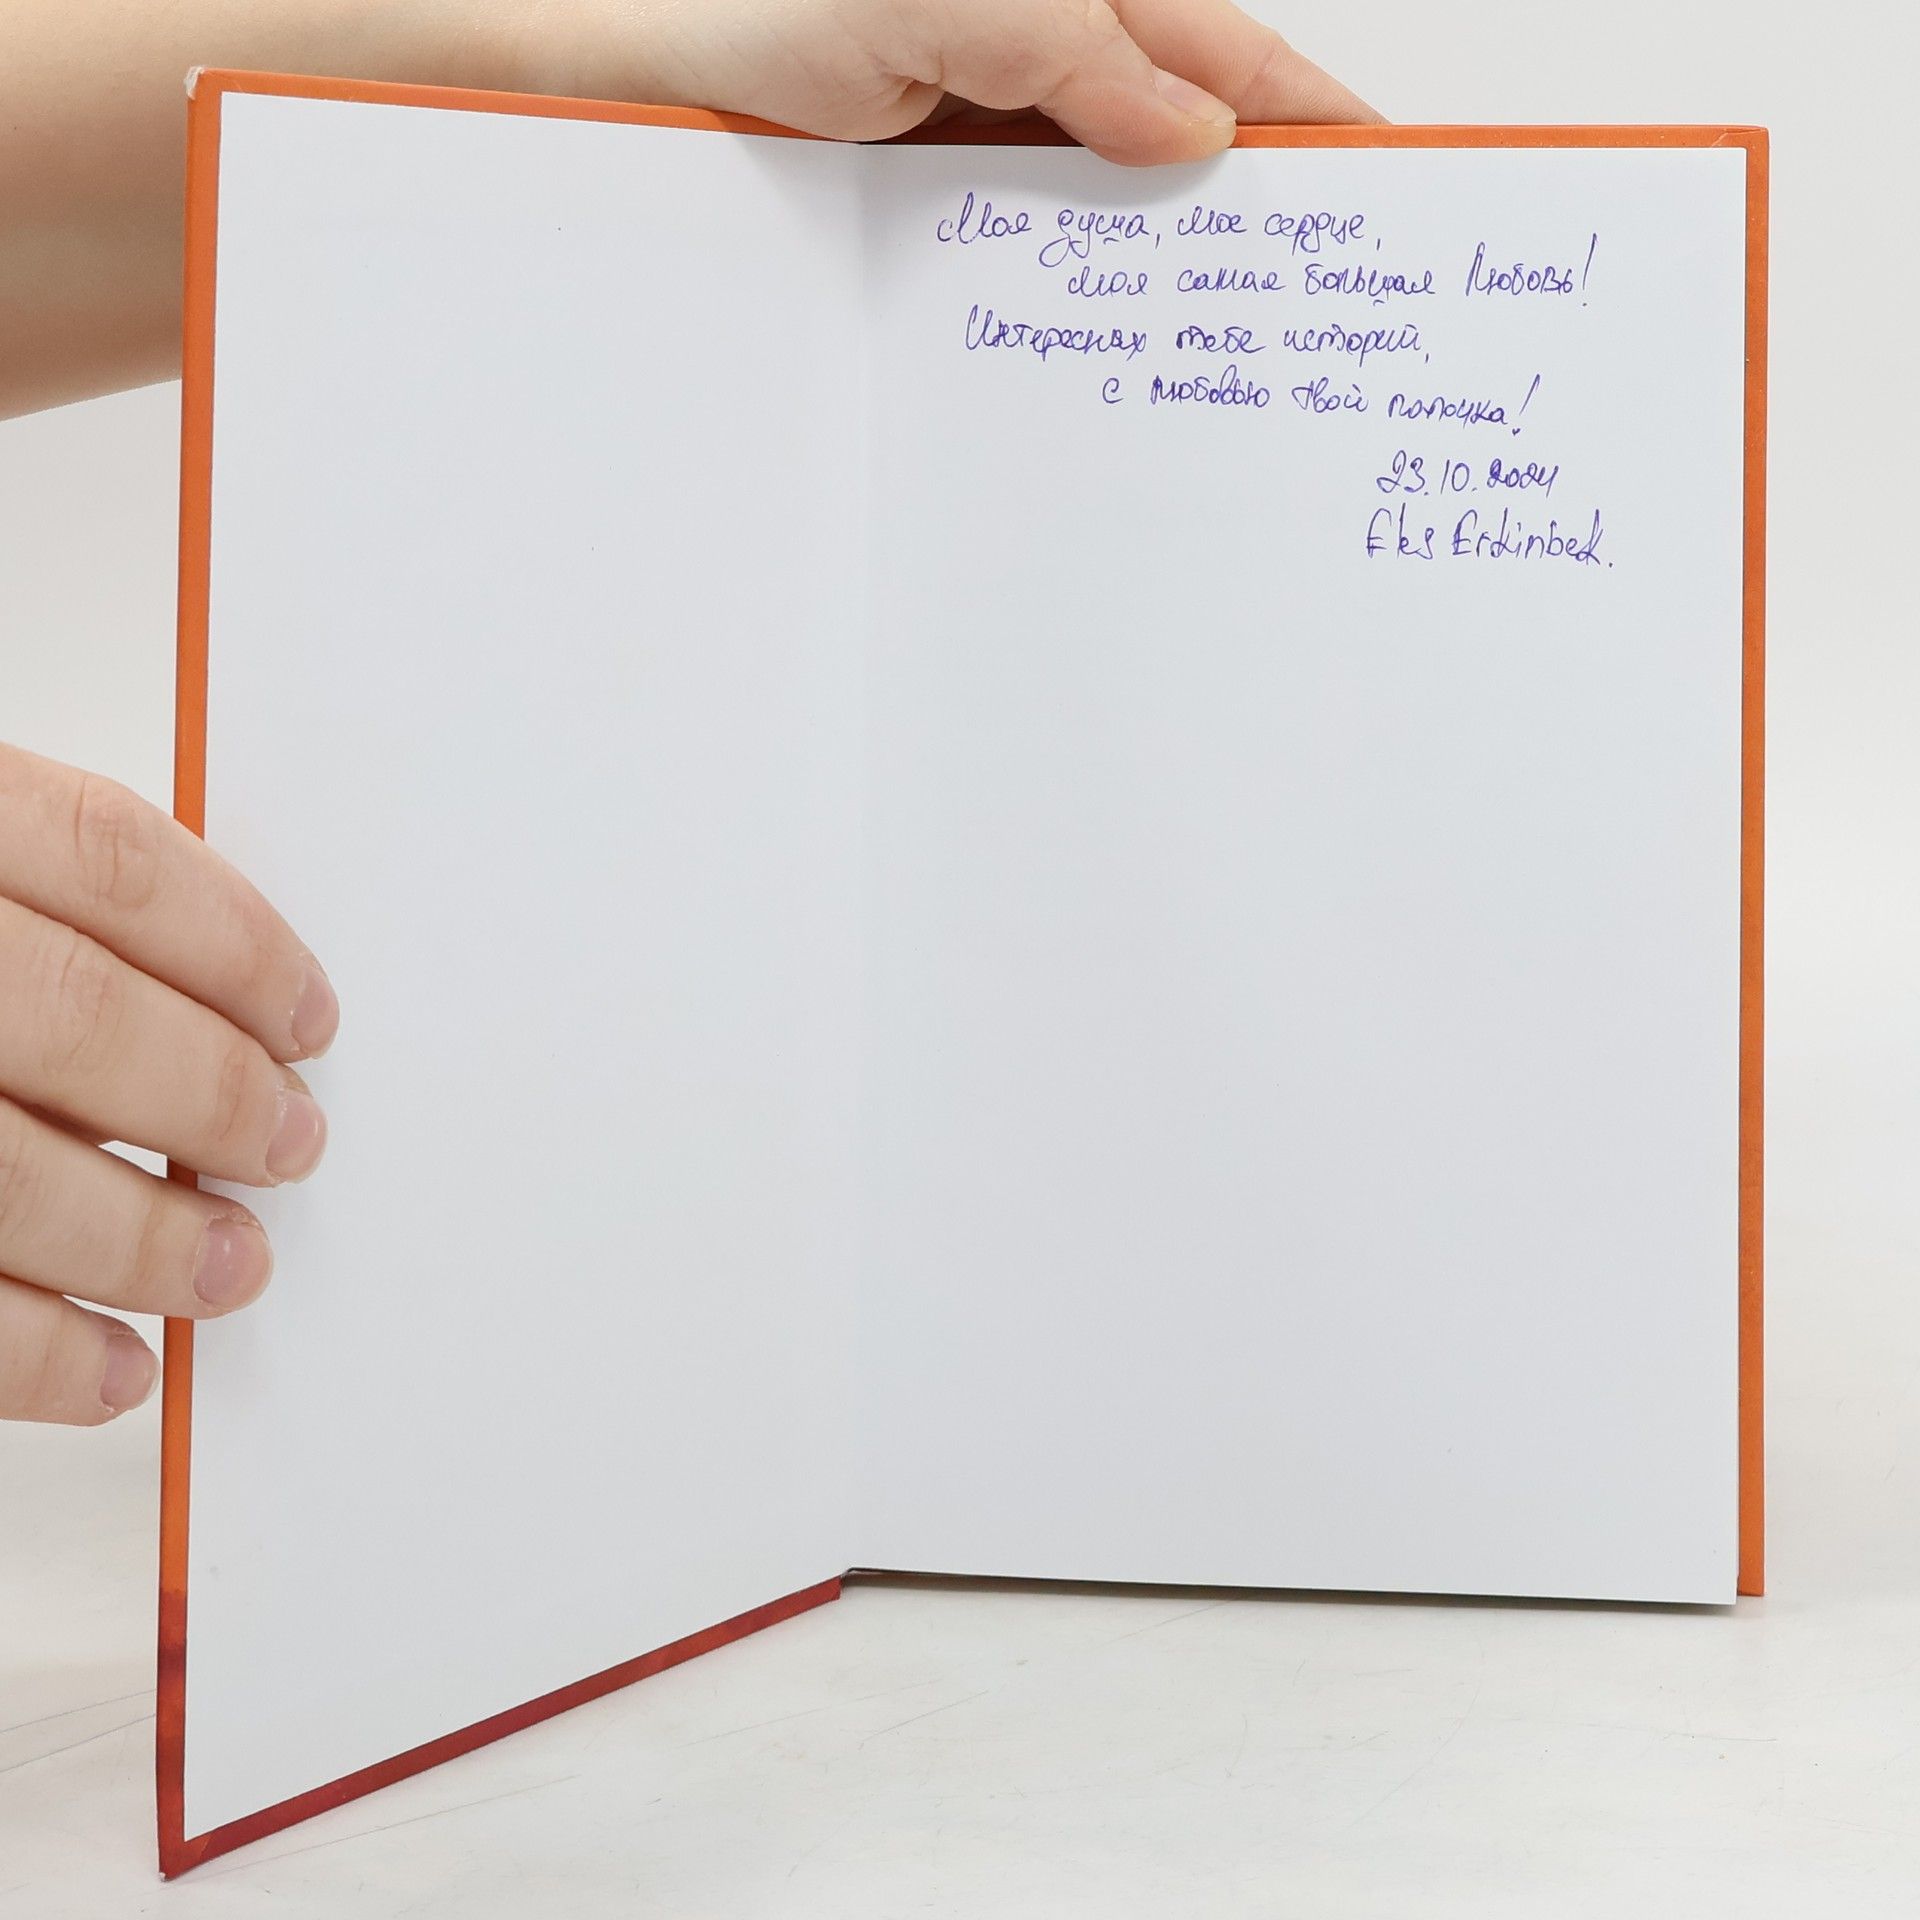 Моя душа, мое сердце,
моя самая большая Любовь!
Интересных тебе историй,
с любовью твой папочка!
23.10.2024
Eks Erkinbek.